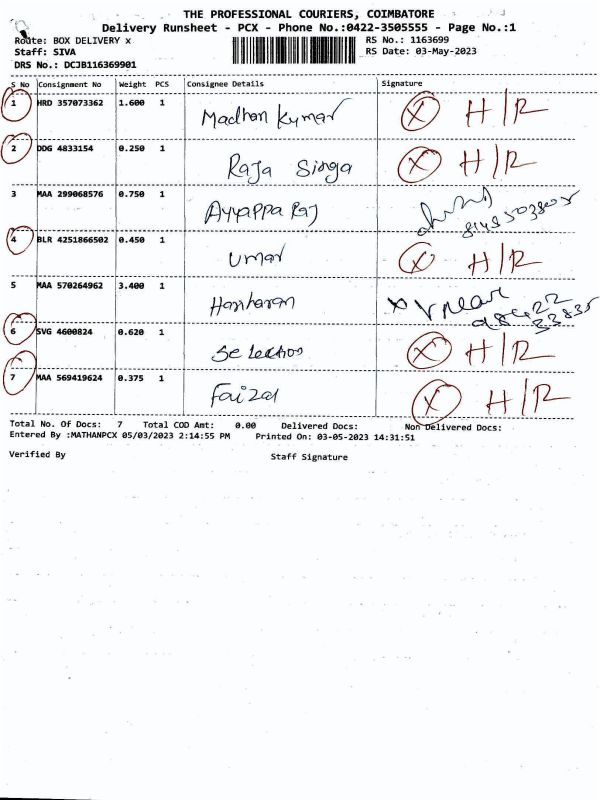 THE PROFESSIONAL COURIERS, COIMBATORE
Delivery Runsheet - PCX - Phone No.:0422-3505555 - Page No.:1
Route: BOX DELIVERY x RS No.: 1163699
Staff: SIVA RS Date: 03-May-2023
DRS No.: DCJB116369901
S No Consignment No Weight PCS Consignee Details Signature
1 HRD 357073362 1.600 1 Madhan Kumar X H/R
2 DDG 4833154 0.250 1 Raja Singa X H/R
3 MAA 299068576 0.750 1 Ayyappa Raj
4 BLR 4251866502 0.450 1 Umar X H/R
5 MAA 570264962 3.400 1 Hariharan
6 SVG 4600824 0.620 1 Selection X H/R
7 MAA 569419624 0.375 1 Faizal X H/R
Total No. Of Docs: 7 Total COD Amt: 0.00 Delivered Docs: Non Delivered Docs:
Entered By :MATHANPCX 05/03/2023 2:14:55 PM Printed On: 03-05-2023 14:31:51
Verified By Staff Signature